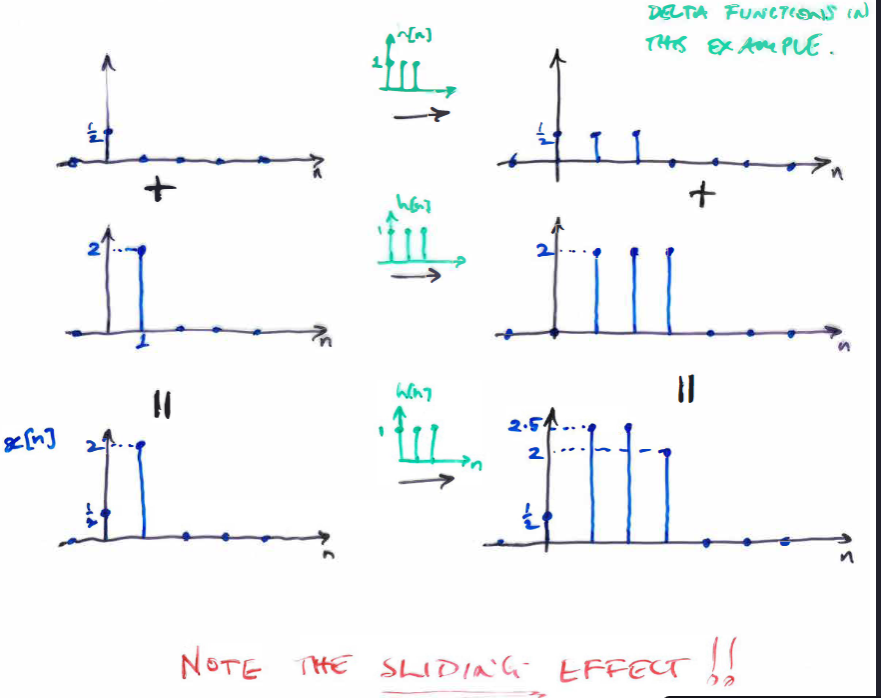 DELTA FUNCTIONS IN
THIS EXAMPLE.
h[n]
1
1/2
n
1/2
n
+
+
h[n]
1
2
1
n
2
n
=
=
h[n]
1
n
x[n]
2
1/2
n
2.5
2
1/2
n
NOTE THE SLIDING EFFECT!!